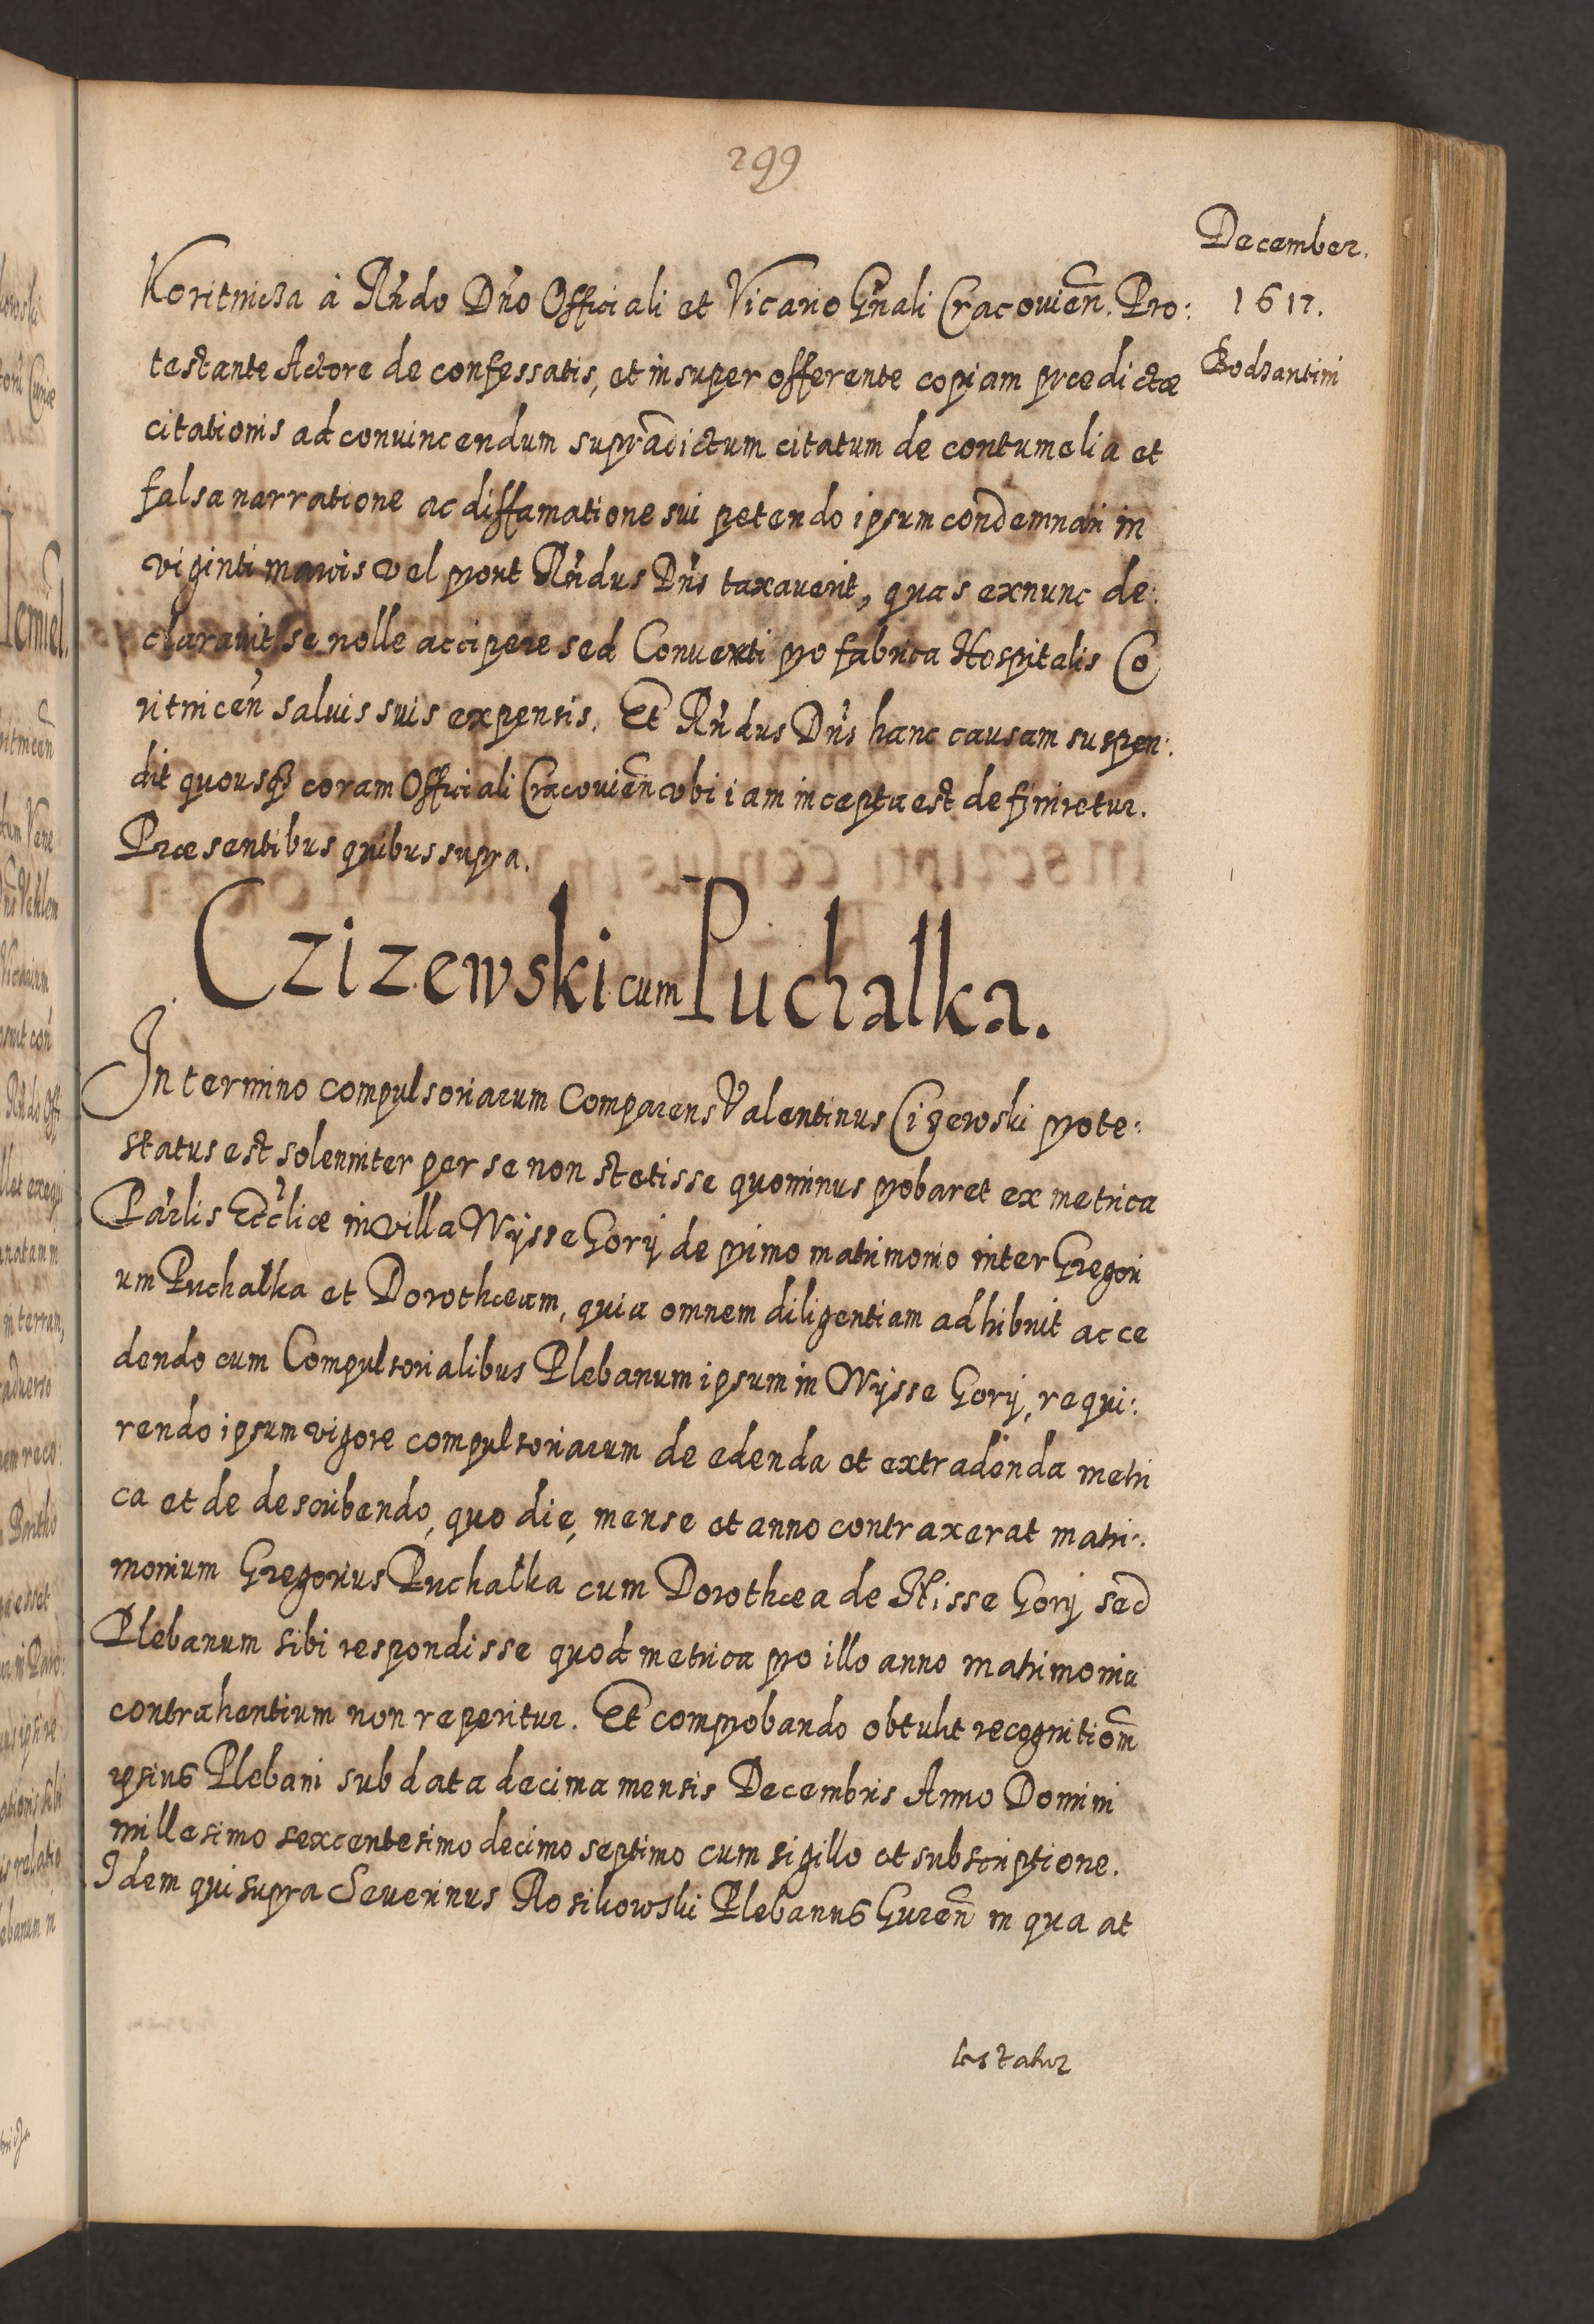 299
December.
1617.
Bodzantini
Koritnicza à Rńdo Dńo Officiali et Vicario Gńali Cracovień. Pro:
testante Actore de confessatis, et insuper offerente copiam prædictæ
citationis ad convincendum supradictum citatum de contumelia et
falsa narratione ac diffamatione sui petendo ipsum condemnari in
viginti marcis vel prout Rńdus Dńs taxaverit, quas exnunc de:
claravit se nolle accipere sed Converti pro fabrica Hospitalis Co
ritniceń salvis suis expensis. Et Rńdus Dńs hanc causam suspen:
dit quousq3 coram Officiali Cracovień ubi iam incepta est definiretur.
Præsentibus quibus supra.
Czizewski cum Puchalka.
In termino compulsoriarum Comparens Valentinus Cizewski prote:
status est solenniter per se non stetisse quominus probaret ex metrica
Paŕlis Ecćliæ in villa Wysse Gory de primo matrimonio inter Gregori
um Puchałka et Dorotheam, quia omnem diligentiam adhibuit acce
dendo cum Compulsorialibus Plebanum ipsum in Wysse Gory, requi:
rendo ipsum vigore compulsoriarum de edenda et extradenda metri
ca et de describendo, quo die, mense et anno contraxerat matri:
monium Gregorius Puchałka cum Dorothea de Hisse Gory sed
Plebanum sibi respondisse quod metrica pro illo anno matrimonia
contrahentium non reperitur. Et comprobando obtulit recognitiom̄
ipsius Plebani sub data decima mensis Decembris Anno Domini
millesimo sexcentesimo decimo septimo cum sigillo et subscriptione.
Idem qui supra Severinus Rosikowski Plebanus Gureń in qua at
testatur